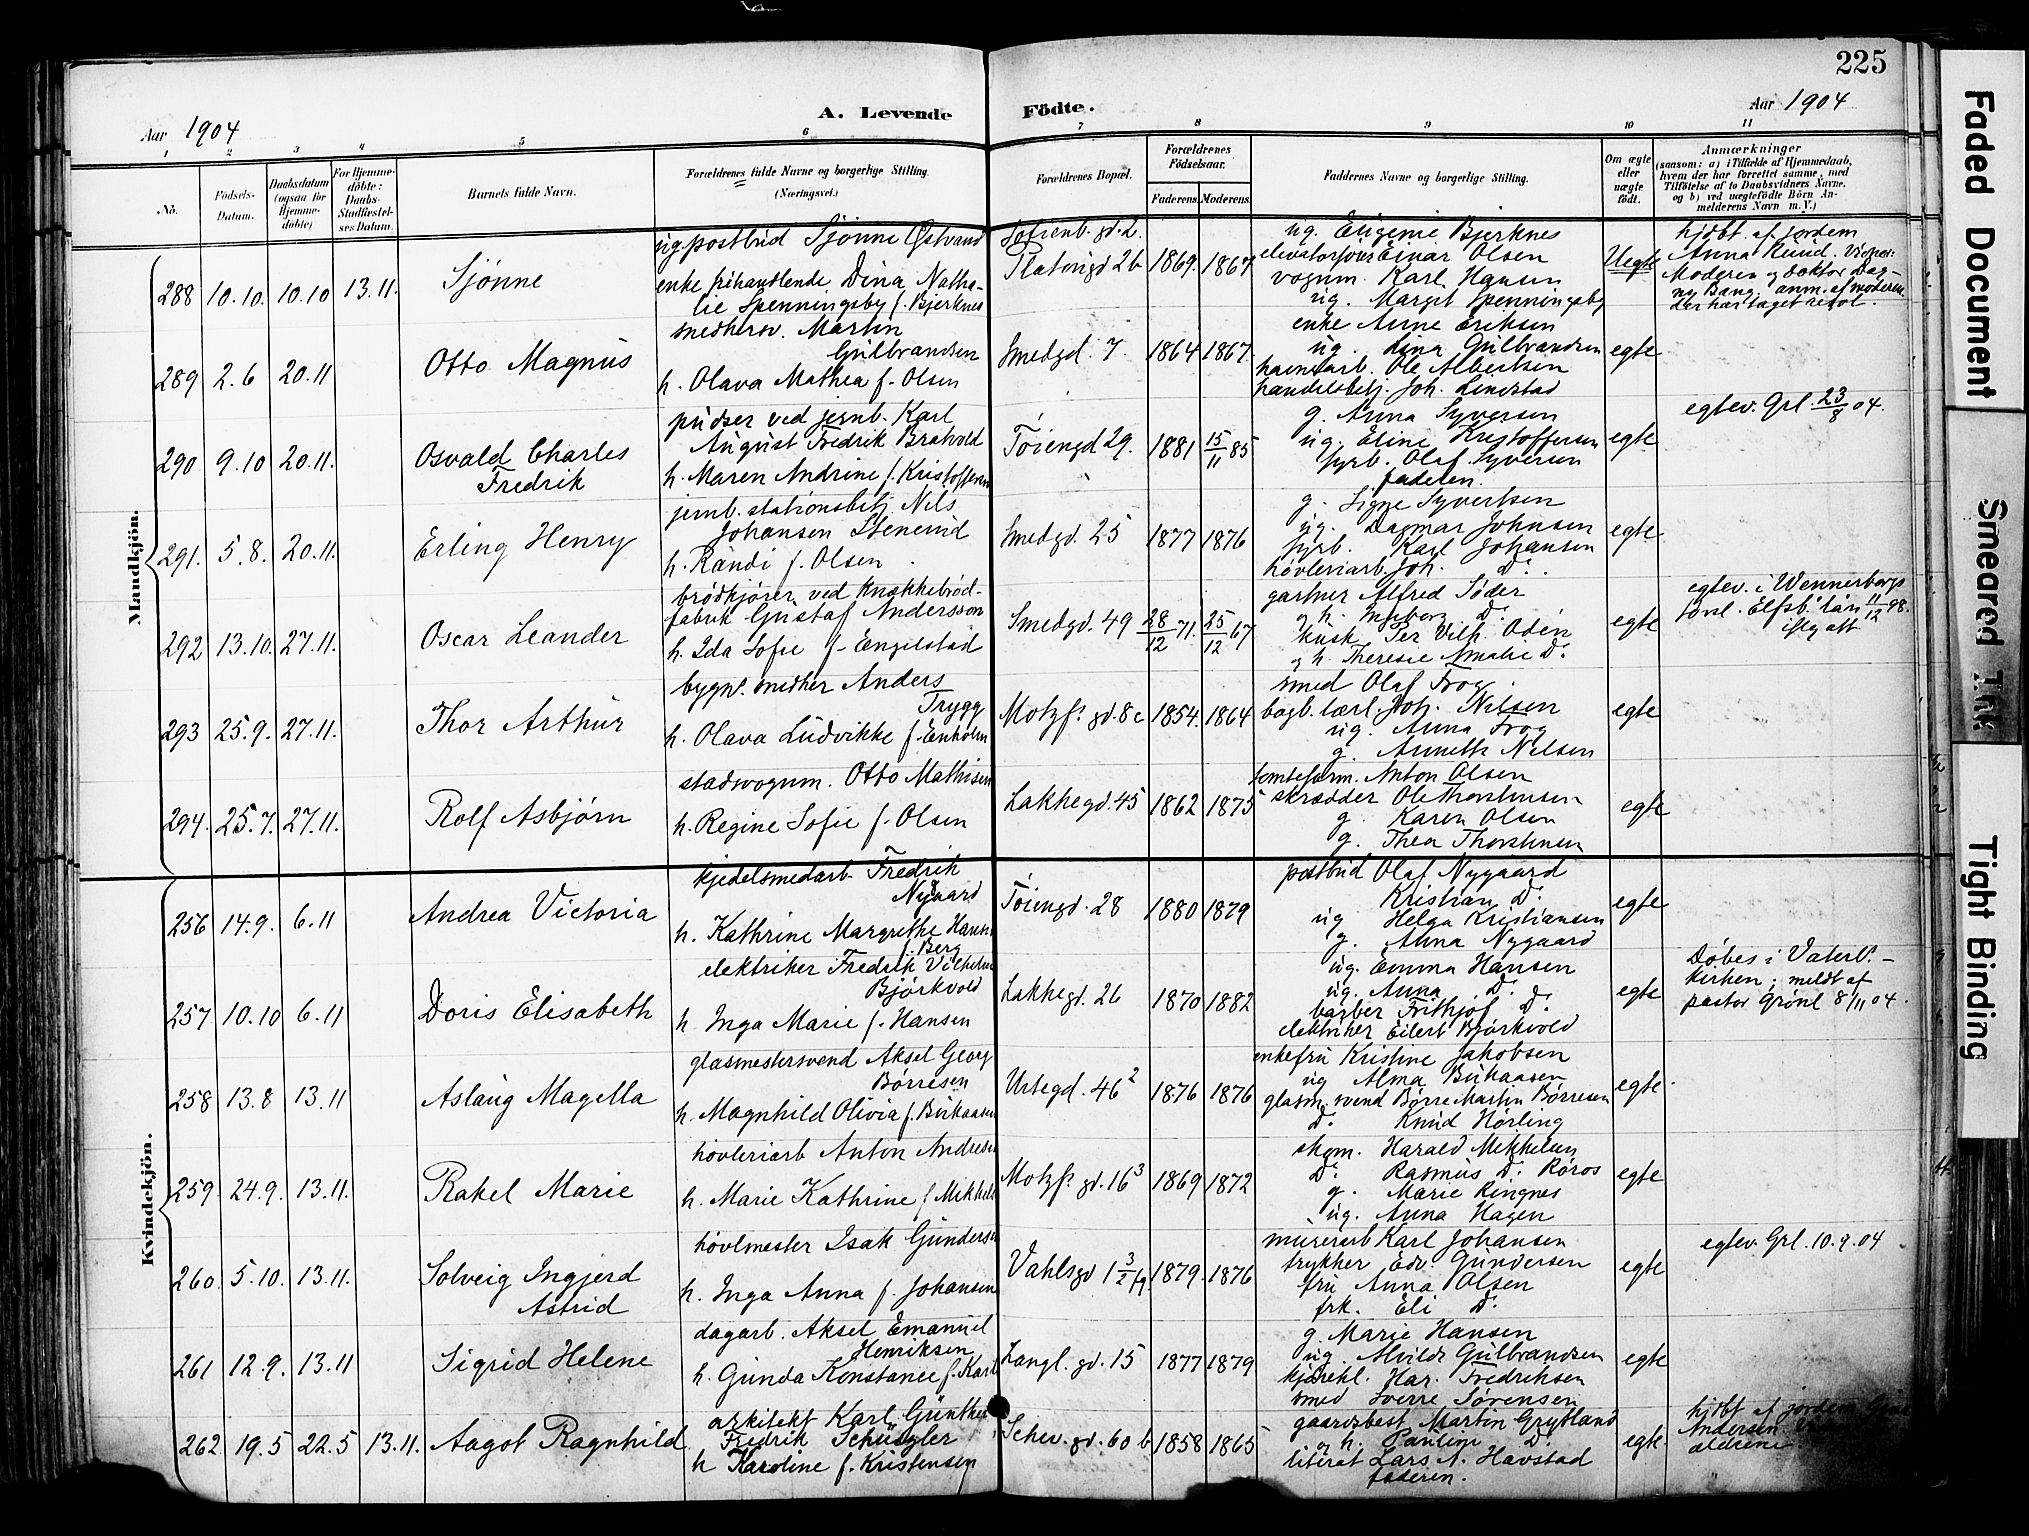 225
Aar 1904
A. Levende
Födte.
Aar 1904
1 2 3 4 5 6 7 8 9 10 11
No.
Födsels-Datum.
Daabsdatum (ogsaa for Hjemmedöbte)
For Hjemmedöbte: Daabs-Stadfæstelses Datum.
Barnets fulde Navn.
Forældrenes fulde Navne og borgerlige Stilling. (Næringsvei.)
Forældrenes Bopæl.
Forældrenes Födselsaar.
Faderens. Moderens.
Faddernes Navne og borgerlige Stilling.
Om ægte eller uægte födt.
Anmærkninger
(saasom: a) i Tilfælde af Hjemmedaab, hvem der har forrettet samme, med Tilföielse af to Daabsvidners Navne, og b) ved uægtefödte Börn Anmelderens Navn m. V.)
Mandkjön.
288 10.10. 10.10 13.11. Sjønne
ug. postbud Sjønne Østvand
enke frihandlende Dina Natha-
lie Spenningsby f. Bjerknes
Sofienb. gd. 2.
Platousgd 26 1869. 1867
ug. Eugenie Bjerknes
elevatorfører Einar Olsen
vognm. Karl Hansen
ug. Margit Spenningsby
Uegte
hjdbt. af jordem
Anna Ruud. Vidner:
Moderen og doktor Dag-
ny Bang. anm. af moderen
der har taget resol.
289 2.6 20.11 Otto Magnus
smedhersv. Martin
Gulbrandsen
h. Olava Mathea f. Olsen
Smedgd. 7. 1864 1867.
enke Anne Eriksen
ug. Lina Gulbrandsen
havnearb. Ole Albertsen
handelsbetj. Joh. Lindstad
egte
290 9.10 20.11. Osvald Charles
Fredrik
pudser ved jernb. Karl
August Fredrik Bratvold
h. Maren Andrine f. Kristoffersen
Tøiengd 29. 1881 15/11 85
g. Anna Syversen
ug. Eline Kristoffersen
fyrb. Olaf Syversen
faderen.
egte
egtev. Grl. 23/8 04.
291. 5.8. 20.11. Erling Henry
jernb. stationsbetj. Nils
Johansen Stenerud
h. Randi f. Olsen
Smedgd. 25 1877 1876
g. Signe Syvertsen
ug. Dagmar Johnsen
fyrb. Karl Johansen
høvleriarb. Joh. Do.
egte
292 13.10. 27.11. Oscar Leander
brødkjører ved knækkebrød-
fabrik Gustaf Andersson
h. Ida Sofie f. Engelstad
Smedgd. 49 28/12 71. 25/12 67
gartner Alfred Söder
og h. Ingeborg Do.
kusk Per Vilh. Odén
og h. Therese Amalie Do.
egte
egtev. i Wennerbergs
fors. Elfsb. län 11/12 98.
iflg att.
293 25.9. 27.11. Thor Arthur
bygn. smedher Anders
Trygg
h. Olava Ludvikke f. Enholm
Motzf. gd. 8c 1854. 1864
smed Olaf Frog.
bogb. lærl. Joh. Nilsen
ug. Anna Frog
g. Annette Nelsen
egte
294. 25.7. 27.11. Rolf Asbjørn
stadsvognm. Otto Mathisen
h. Regine Sofie f. Olsen
Lakkegd. 45 1862 1875
tomteform. Anton Olsen
skrædder Ole Thorstensen
g. Karen Olsen
g. Thea Thorstensen
egte
Kvindekjön.
256 14.9. 6.11 Andrea Victoria
kjedelsmedarb. Fredrik
Nygaard
h. Kathrine Margrethe Hansen
f. Berg
Tøiengd. 28 1880 1879
postbud Olaf Nygaard
Kristian Do.
ug Helga Kristiansen
g. Anna Nygaard
egte
257 10.10 6.11 Doris Elisabeth
elektriker Fredrik Vilhelm
Bjørkvold
h. Inga Marie f. Hansen
Lakkegd. 26 1870 1882
ug. Emma Hansen
ug. Anna Do.
barber Frithjof Do.
elektriker Eilert Bjørkvold
egte
Døbes i Vaterl.-
kirken; meldt af
pastor Grønl 8/11 04.
258 13.8 13.11 Aslaug Magella
glasmestersvend Aksel Georg
Børresen
h. Magnhild Olivia f. Buhaasen
Urtegd. 46 2 1876 1876
enkefru Kristine Jakobsen
ug Alma Buhaasen
glasm. svend Børre Martin Børresen
Do. Knud Hørling
egte
259 24.9. 13.11. Rakel Marie
høvleriarb Anton Andresen
h. Marie Kathrine f. Mikkels
Motzf. gd. 16 3 1869 1872
skom. Harald Mikkelsen
Do. Rasmus Do. Røros
g. Marie Ringnes
ug. Anna Hagen
egte
260 5.10. 13.11. Solveig Ingjerd
Astrid
høvlmester Isak Gundersen
h. Inga Anna f. Johansen
Vahlsgd 1 3/2 1879. 1876
murerarb Karl Johansen
trykker Edv. Gundersen
fru Anna Olsen
frk. Eli Do.
egte
egtev. Grl. 10.9.04
261 12.9. 13.11 Sigrid Helene
dagarb. Aksel Emanuel
Henriksen
h. Gunda Konstance f. Karls
Langl. gd. 15 1877 1879
g. Marie Hansen
ug. Alvilde Gulbrandsen
Har. Fredriksen
smed Sverre Sørensen
egte
262 19.5 22.5 13.11. Aagot Ragnhild
arkitekt Karl Günther
Fredrik Schüszler
h Karoline f. Kristensen
Schw. gd. 60 b 1858 1865
gaardsbest. Martin Gryttand
og h. Pauline Do.
literat Lars N. Havstad
faderen.
egte
hjdbt af jordem
Andersen
ældrene
Faded Document
Smeared Ink
Tight Binding